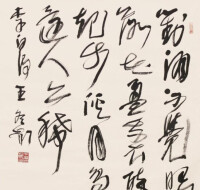 對酒不覺暝
落花盈我衣醉
起步溪月鳥
還人亦稀
李白詩 王